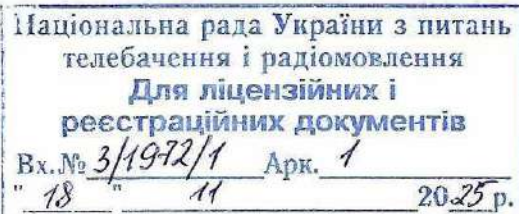 Національна рада України з питань
телебачення і радіомовлення
Для ліцензійних і
реєстраційних документів
Вх.№ 3/1972/1 Арк. 1
" 18 " 11 2025 р.